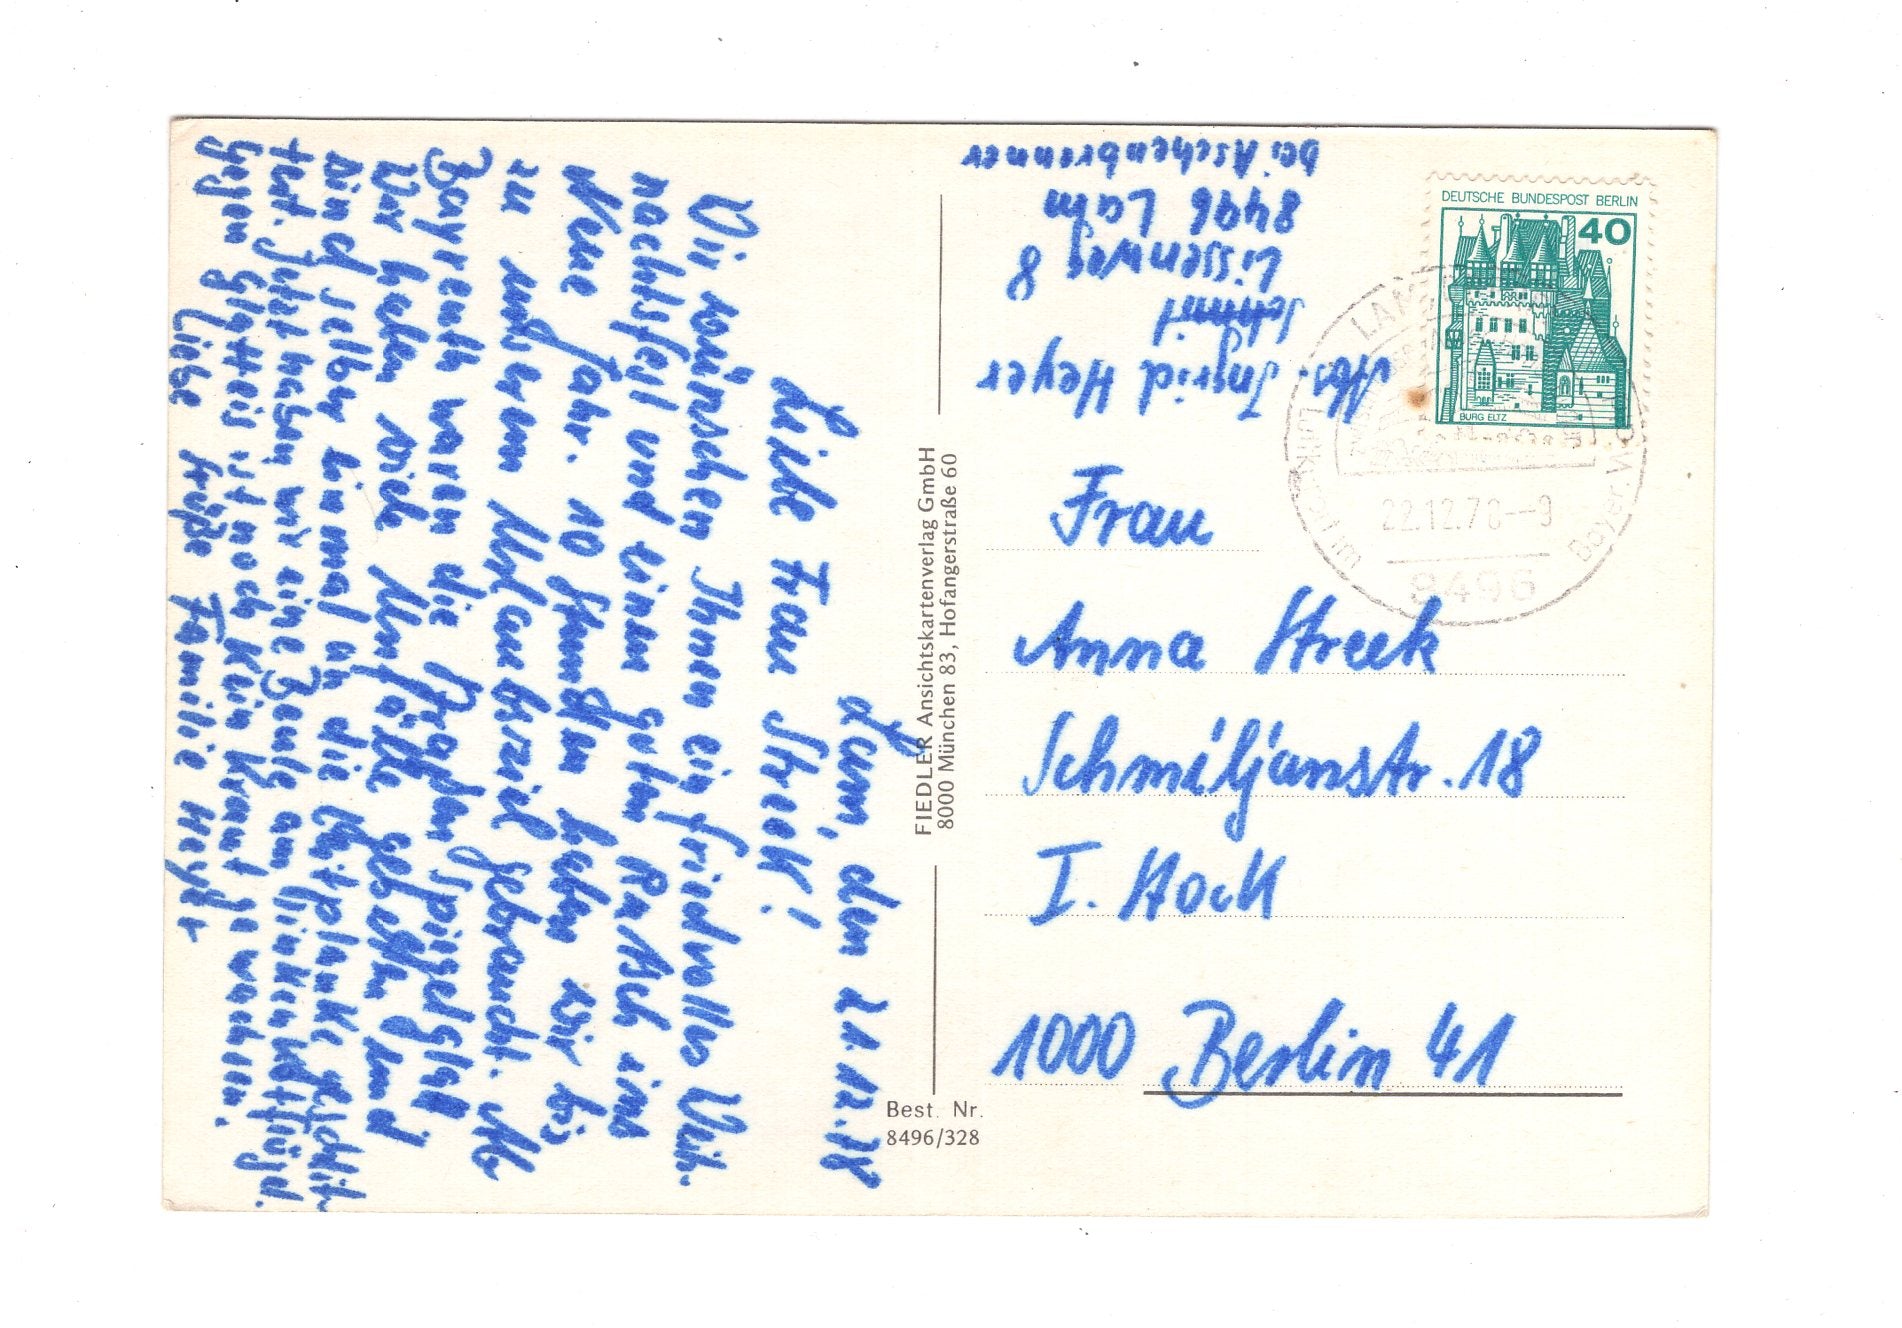 Lam, den 21.12.78
Liebe Frau Streek!
Wir wünschen Ihnen ein friedvolles Weih-
nachtsfest und einen guten Rutsch ins
Neue Jahr. 10 Stunden haben wir bis
zu unserem Urlaubsziel gebraucht. Ab
Bayreuth waren die Straßen Spiegelglatt
Wir haben viele Unfälle gesehen und
sind selby einmal an die Leitplanke geschlit-
tert. Jetzt haben wir eine Beule am linken Kotflügel.
Gegen Glatteis ist noch kein Kraut gewachsen.
Liebe Grüße Familie Heyer
FIEDLER Ansichtskartenverlag GmbH
8000 München 83, Hofangerstraße 60
Best. Nr.
8496/328
Abs. Ingrid Heyer
Lissenweg 8
8496 Lam
bei Aschenbrenner
DEUTSCHE BUNDESPOST BERLIN
40
BURG ELTZ
LAM
Luftkurort im Bayer. W
22.12.78--9
8496
Frau
Anna Streek
Schmiljanstr. 18
I. Stock
1000 Berlin 41